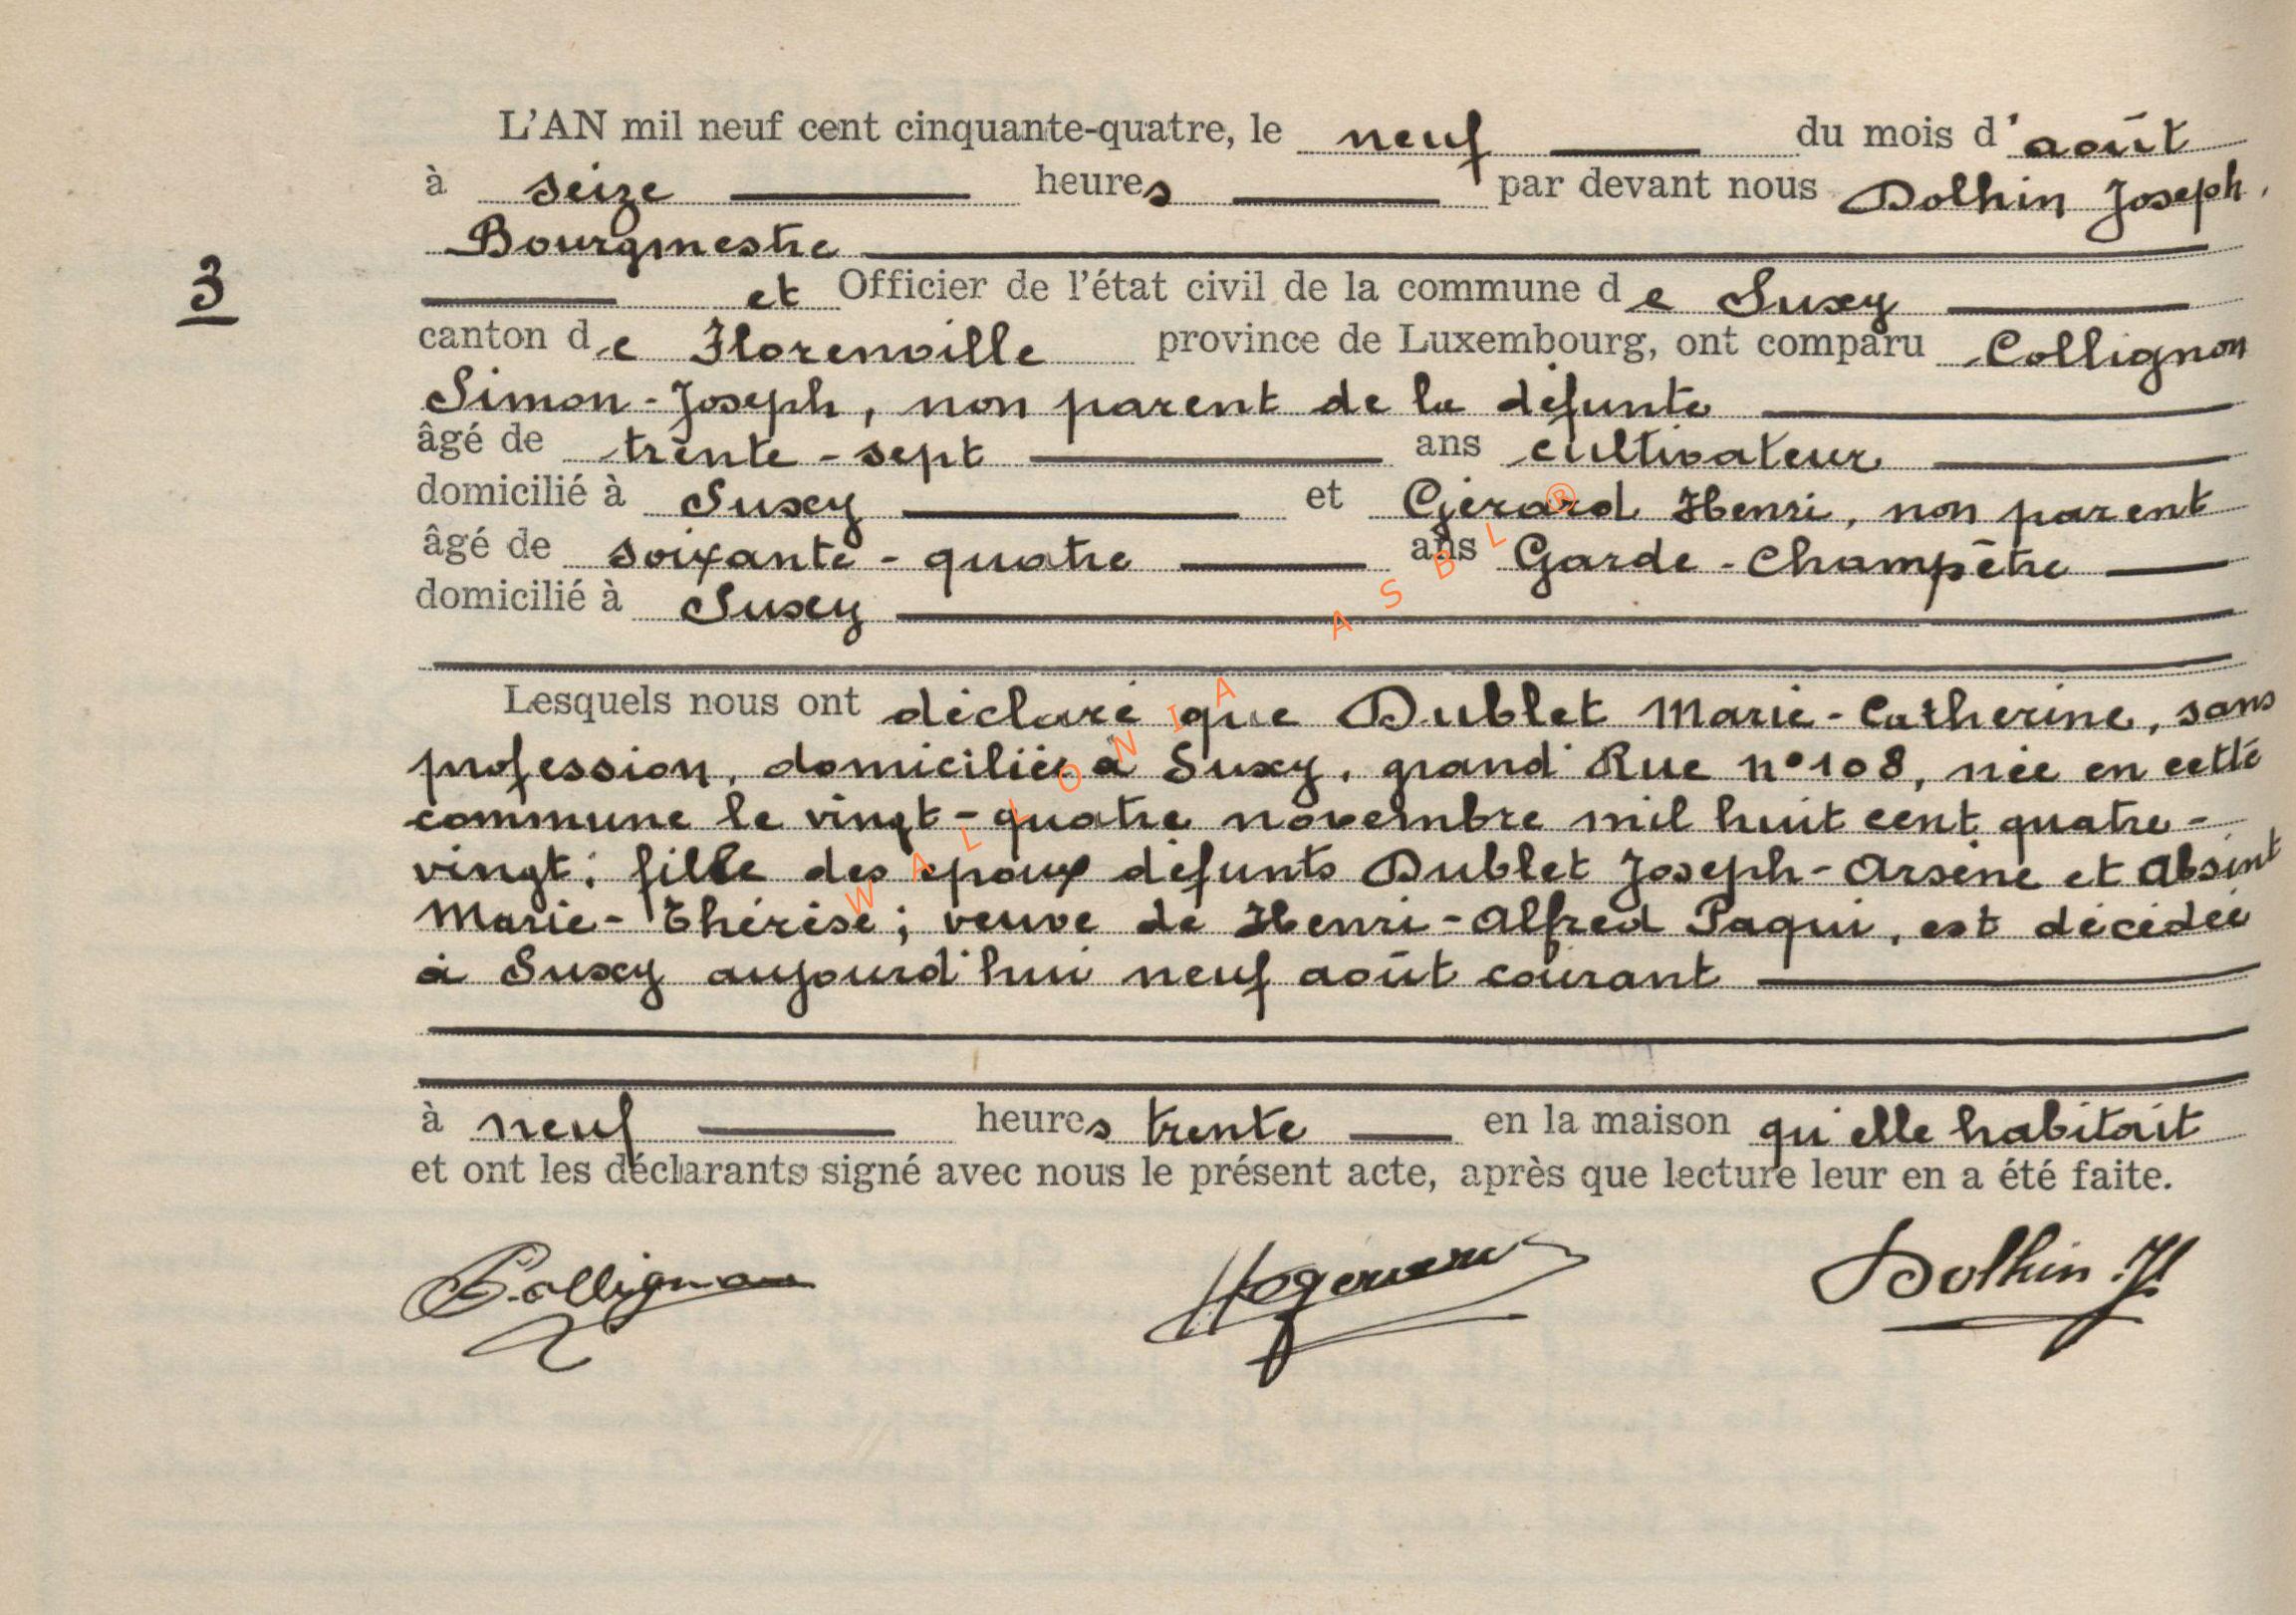 L'AN mil neuf cent cinquante-quatre, le neuf du mois d'août
à seize heures par devant nous Dolhin Joseph,
Bourgmestre
3
et Officier de l'état civil de la commune de Suxy
canton de Florenville province de Luxembourg, ont comparu Collignon
Simon-Joseph, non parent de la défunte
âgé de trente-sept ans cultivateur
domicilié à Suxy et Gérard Henri, non parent
âgé de soixante-quatre ans Garde-Champêtre
domicilié à Suxy
Lesquels nous ont déclaré que Dublet Marie-Catherine, sans
profession, domiciliée à Suxy, grand'Rue n°108, née en cette
commune le vingt-quatre novembre mil huit cent quatre-
vingt; fille des époux défunts Dublet Joseph-Arsène et Absint
Marie-Thérèse; veuve de Henri-Alfred Paqui, est décédée
à Suxy aujourd'hui neuf août courant
à neuf heures trente en la maison qu'elle habitait
et ont les déclarants signé avec nous le présent acte, après que lecture leur en a été faite.
Collignon
Dolhin J
WALLONIA ASBL ®